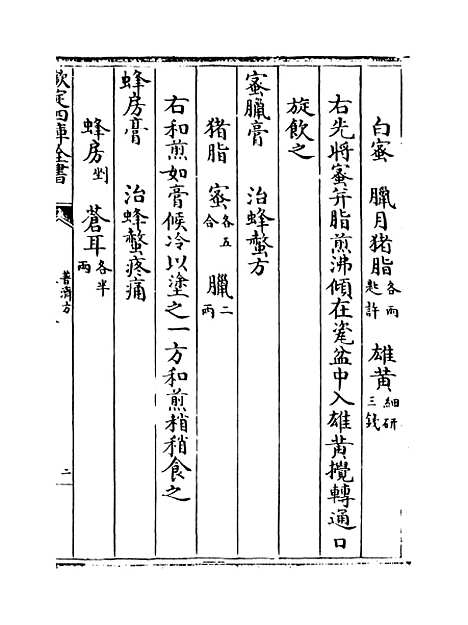 白蜜　臘月猪脂各兩匙許　雄黃細研三錢
右先將蜜并脂煎沸傾在瓷盆中入雄黃攪轉通口
旋飲之
蜜臘膏　治蜂螫方
猪脂　蜜各五合　臘二兩
右和煎如膏候冷以塗之一方和煎稍稍食之
蜂房膏　治蜂螫疼痛
蜂房剉　蒼耳各半兩
欽定四庫全書
普濟方
二